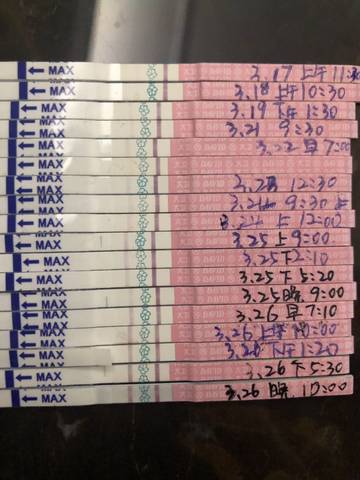 MAX 3.17 上午 11:30
MAX 3.18 上午 10:30
MAX 3.19 下午 1:30
MAX 3.21 9:30
MAX 3.22 早 7:00
MAX
MAX 3.23 12:30
MAX 9:30
MAX 上 12:00
MAX 3.25 上 9:00
MAX 3.25 下 2:10
MAX 3.25 下 5:20
MAX 3.25 晚 9:00
MAX 3.26 早 7:10
MAX 3.26 上午 10:00
MAX 3.26 下午 1:20
MAX 3.26 下 5:30
MAX 3.26 晚 10:00